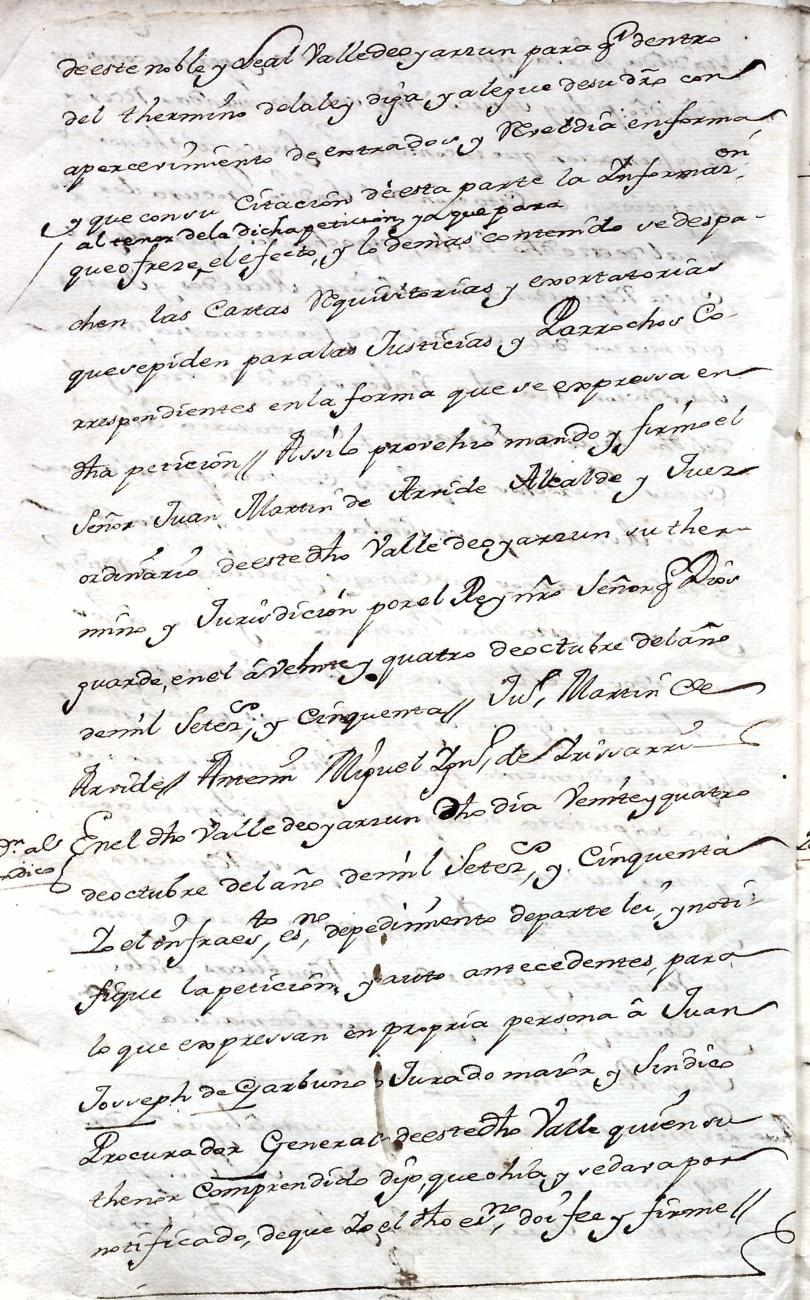 deeste noble y Leal Valle deoyarzun para q.e dentro
del thermino delaley diga y alegue desu dro con
apercevimiento de extrados y Reveldia enforma
y que con su Citacion deesta parte la Informaz.on
al tenor dela dicha peticion, ya que para
que ofreze, el efecto, y lo demas contenido se despa-
chen las Cartas Requisitorias y exortatorias
que se piden para las Justicias y Parrochos Co-
rrespondientes en la forma que se expressa en
dha peticion // Assi lo provehio mando y firmo el
Señor Juan Martin de Arvide Alcalde y Juez
ordinario deeste dho Valle deoyarzun su ther-
mino y Jurisdicion por el Rey nro Señor q Dios
guarde, en el â Veinte y quatro de octubre del año
demil Setez.os y Cinquenta // Ju.n Martin de
Arvide // Antemi Miguel Ign.o de Irissarri
En el dho Valle deoyarzun dho dia Veinte y quatro
de octubre del año demil Setez.os y Cinquenta
Yo el infraes.to es.no de pedimiento de parte lei, y noti-
fique la peticion, y auto antecedentes, para
lo que expressan en propria persona â Juan
Josseph de Garbuno Jurado maior y Sindico
Procurador General deeste dho Valle quien su
thenor Comprendido dijo, que ohia, y sedava por
notificado, deque Yo el dho es.no doi fee y firme //